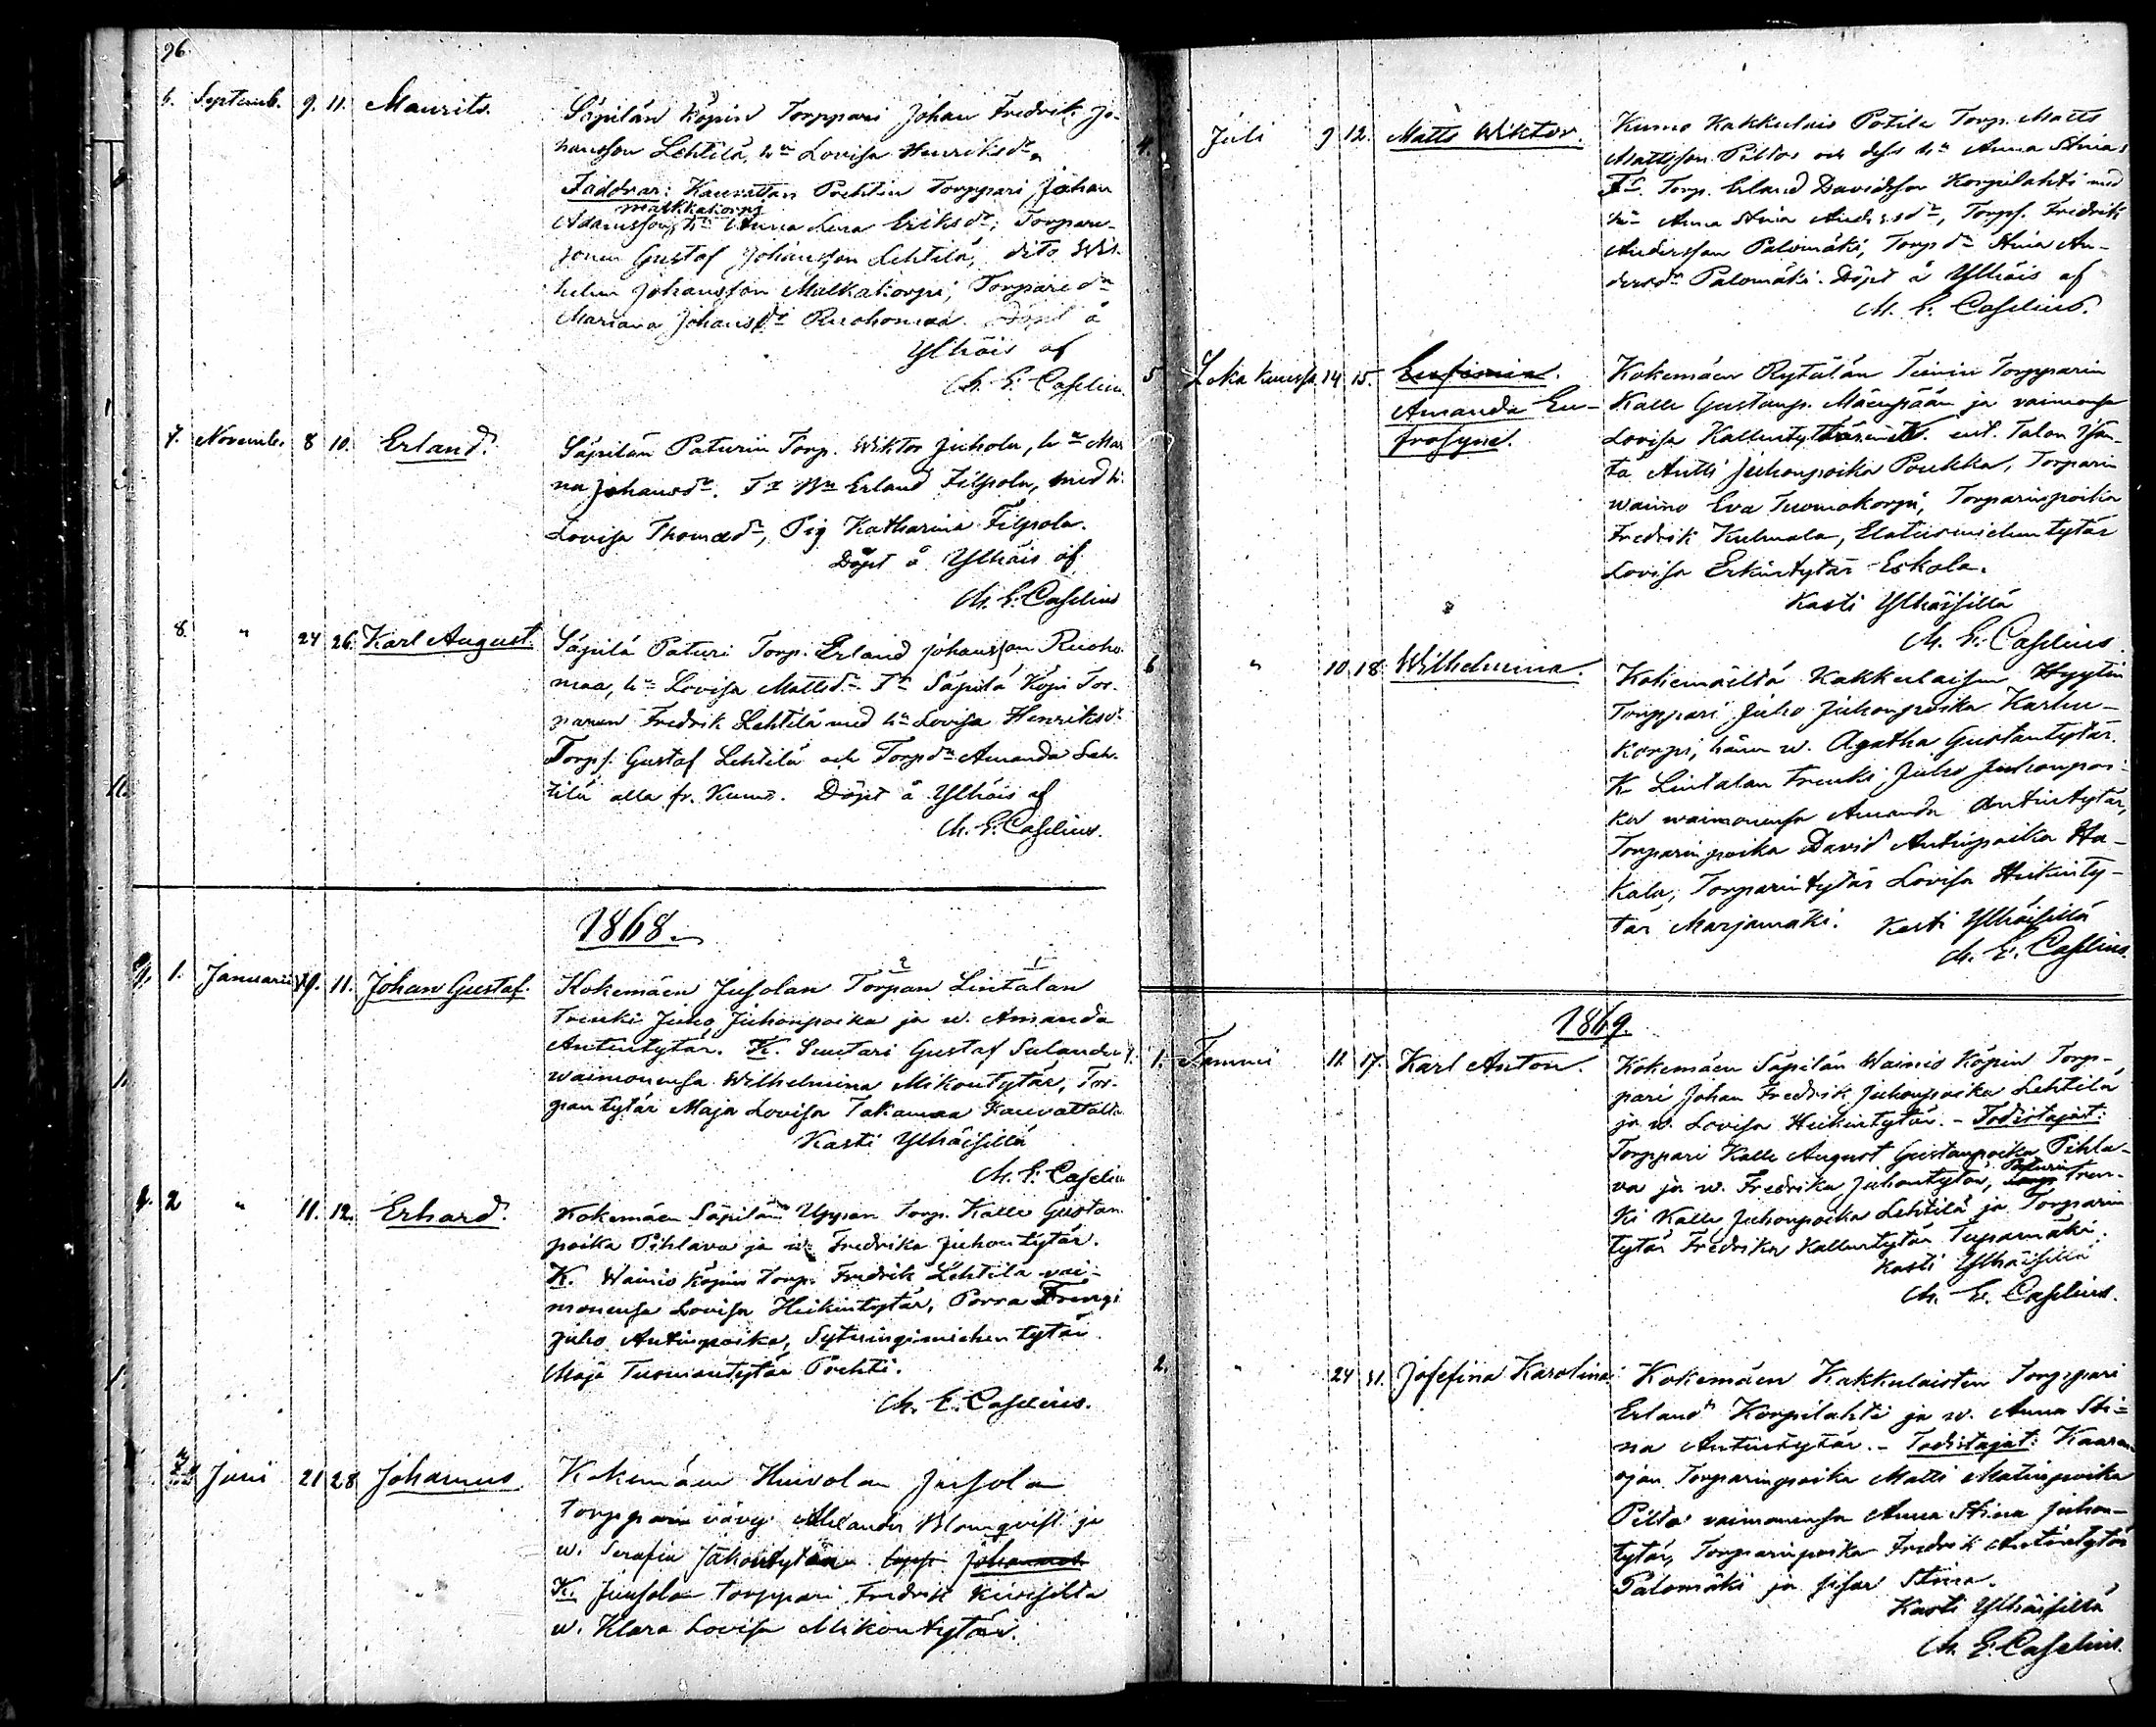 96.
6. Septemb. 9. 11. Maurits. Säpilän Köpin Torppari Johan Fredrik Jo-
hansson Lehtilä, hu Lovisa Henriksdr
Faddrar: Kauvattan Prehtin Torppari Johan
Malkkakorpi
Adamsson, hu Anna Lena Eriksdr; Torpare-
sonen Gustaf Johansson Lehtilä, dito Wil-
helm Johansson Malkakorpi, Torparedr
Mariana Johansdr Ruohomaa. Döpt å
Ylhäis af
M. E. Caselius.
7. Novemb. 8 10. Erland. Säpilän Paturin Torp. Wiktor Juhola, hu Ma
na Johansdr. Fr Bn Erland Filpola, med h.
Lovisa Thomasdr, Pig Katharina Filpola.
Döpt å Ylhäis af
M. E. Caselius
8. " 24 26. Karl August. Säpilä Paturi Torp. Erland Johansson Ruoho-
maa, hu Lovisa Mattsdr. Fr Säpilä Köpi Tor-
paren Fredrik Lehtilä med hu Lovisa Henriksdr
Torps. Gustaf Lehtilä och Torpdr Amanda Leh-
tilä alla fr. Kumo. Döpt å Ylhäis af
M. E. Caselius.
1868.
1. Januarii 9. 11. Johan Gustaf. Kokemäen Jusolan Torpan Lintalan
Trenki Juho Juhonpoika ja w. Amanda
Antintytär. K. Suutari Gustaf Sulander
waimonensa Wilhelmina Mikontytär, Tor-
pantytär Maja Lovisa Takamaa Kauvattalta
Kasti Ylhäisillä
M. E. Caselius
2 " 11. 12. Erhard. Kokemäen Säpilän Uppan Torp. Kalle Gustan
poika Pihlava ja w. Fredrika Juhontytär.
K. Wainio Köpin Torp. Fredrik Lehtilä vai-
monensa Lovisa Heikintytär, Porra Trengi
Juho Antinpoika, Sytüngimiehen tytär
Maja Tuomantytär Prehti.
M. E. Caselius.
Juni 21 28 Johannes Kokemäen Huivolan Jusola
torpparin vävy Alexander Blomqvist ja
w. Serafia Jakontytär. Johannes
K. Juusolan torppari Fredrik Kivisilta
w. Klara Lovisa Mikontytär.
4. Juli 9 12. Matts Wiktor. Kumo Kakkulais Potila Torp. Matts
Mattsson Piltos och dess hu Anna Stina
Fr. Torp. Erland Davidsson Korpilahti med
hu Anna Stina Andersdr, Torps. Fredrik
Andersson Palomäki, Torpdr Stina An-
dersdr Palomäki. Döpt å Ylhäis af
M. E. Caselius.
5 Lokakuussa 14 15. Eufimia.
Amanda Eu-
frosyne. Kokemäen Rytälän Tienin Torpparin
Kalle Gustaup. Mäenpään ja vaimonsa
Lovisa Kallentyttären K. ent. Talon Isän-
tä Antti Juhonpoika Poukka, Torparin
waimo Eva Tuomakorpi, Torparinpoika
Fredrik Kulmala, Elatusmiehentytär
Lovisa Erkintytär Eskola.
Kasti Ylhäisillä
M. E. Caselius
6 " 10 18 Wilhelmina. Kokemäeltä Kakkulaisen Hyytin
Torppari Juho Juhonpoika Karhu-
korpi, hänen w. Agatha Gustantytär.
K Lintalan Trenki Juho Juhonpoi-
ka waimonensa Amanda Antintytär,
Torparinpoika David Antinpoika Ha-
kala, Torparintytär Lovisa Heikinty-
tär Marjamäki. Kasti Ylhäisillä
M. E. Caselius.
1869.
1. Tammi 11. 17. Karl Anton. Kokemäen Säpilän Wainio Köpin Torp-
pari Johan Fredrik Juhonpoika Lehtilä
ja w. Lovisa Heikintytär. - Todistajat:
Torppari Kalle August Gustanpoika Pihla-
va ja w. Fredrika Juhontytär, Paturin Tren-
ki Kalle Juhonpoika Lehtilä ja Torparin
tytär Fredrika Kallentytär Tuparmäki.
Kasti Ylhäisillä
M. E. Caselius.
2. " 24 31. Josefina Karolina. Kokemäen Kakkulaisten Torppari
Erland Korpilahti ja w. Anna Sti-
na Antintytär. - Todistajat: Kaaran-
ojan Torparinpoika Matti Matinpoika
Pilto vaimonensa Anna Stina Juhon-
tytär, Torparinpoika Fredrik Antintytär
Palomäki ja sisar Stina.
Kasti Ylhäisillä
M. E. Caselius.